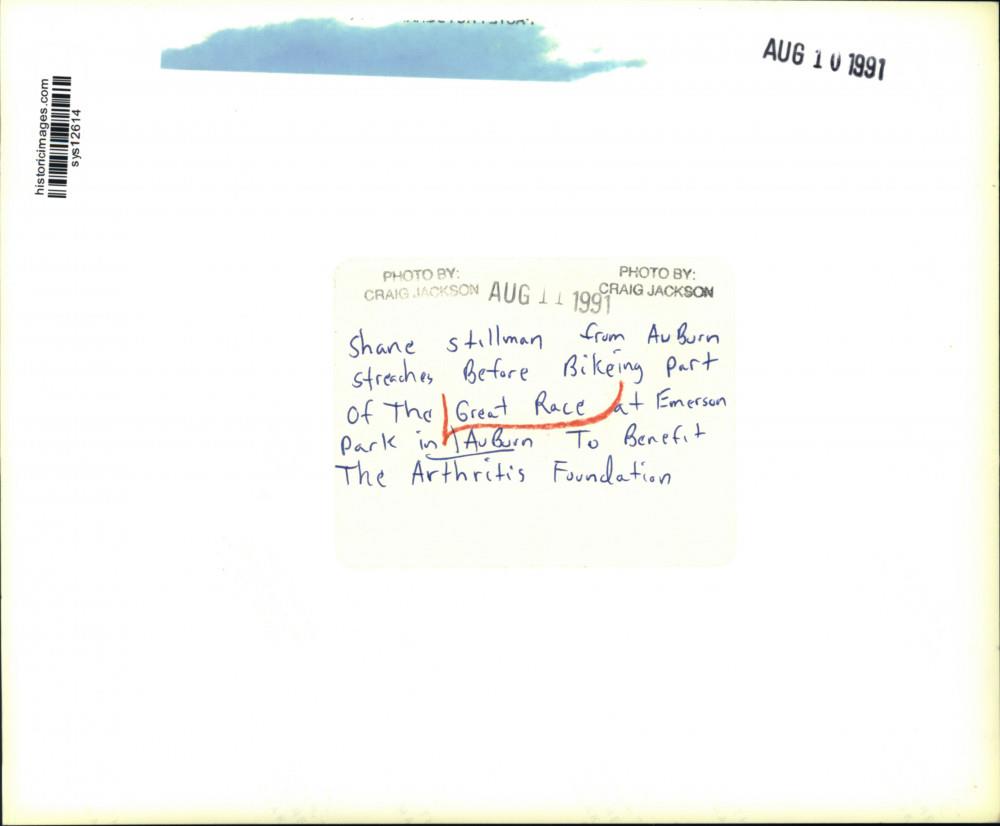 AUG 10 1991
historicimages.com
sys12614
PHOTO BY:
CRAIG JACKSON
AUG 11 1991
PHOTO BY:
CRAIG JACKSON
Shane stillman from AuBurn
streaches Before Bikeing Part
Of The Great Race at Emerson
Park in AuBurn To Benefit
The Arthritis Foundation